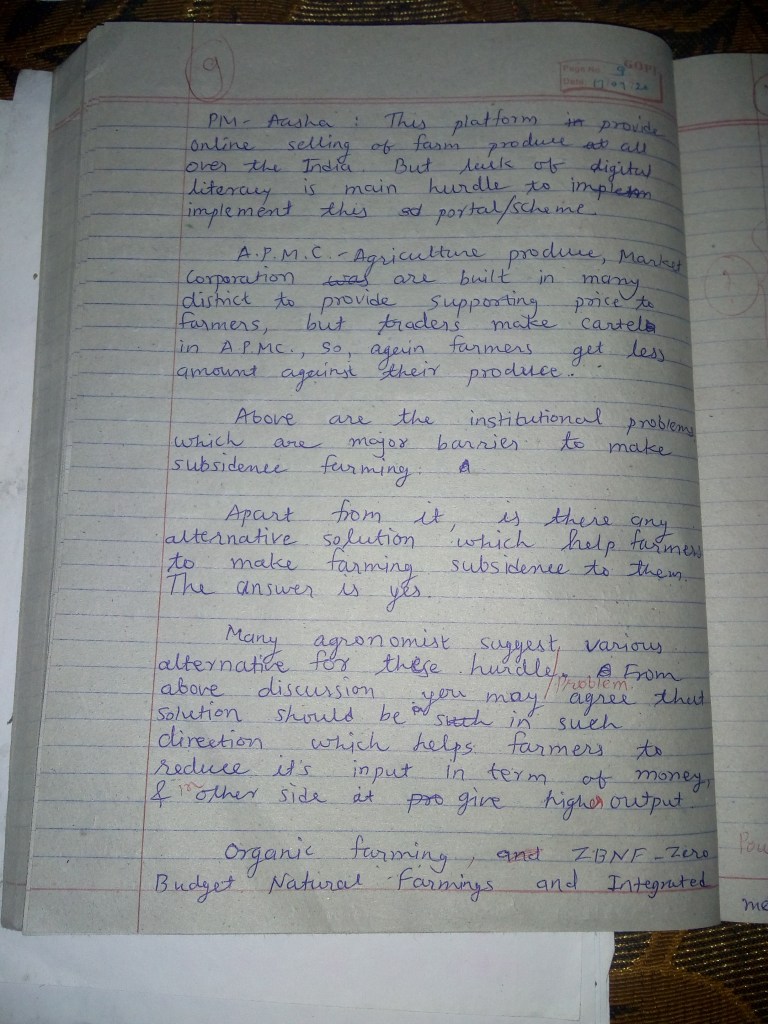 9
GOPI
Page No. 9
Date
PM-Aasha : This platform in provide
online selling of farm produce at all
over the India. But lack of digital
literacy is main hurdle to implem
implement this sd portal/scheme.
A.P.M.C. - Agriculture produce, Market
Corporation was are built in many
district to provide supporting price to
farmers, but traders make cartels
in APMC., so, again farmers get less
amount against their produce.
Above are the institutional problems
which are major barrier to make
subsidence farming.
Apart from it, is there any
alternative solution which help farmers
to make farming subsidence to them.
The answer is yes.
Many agronomist suggest various
alternative for these hurdle. From
problem.
above discussion you may agree that
solution should be in such in such
direction which helps farmers to
reduce it's input in term of money,
& other side it pro give higher output
Organic farming, and ZBNF-Zero
Budget Natural Farmings and Integrated
me